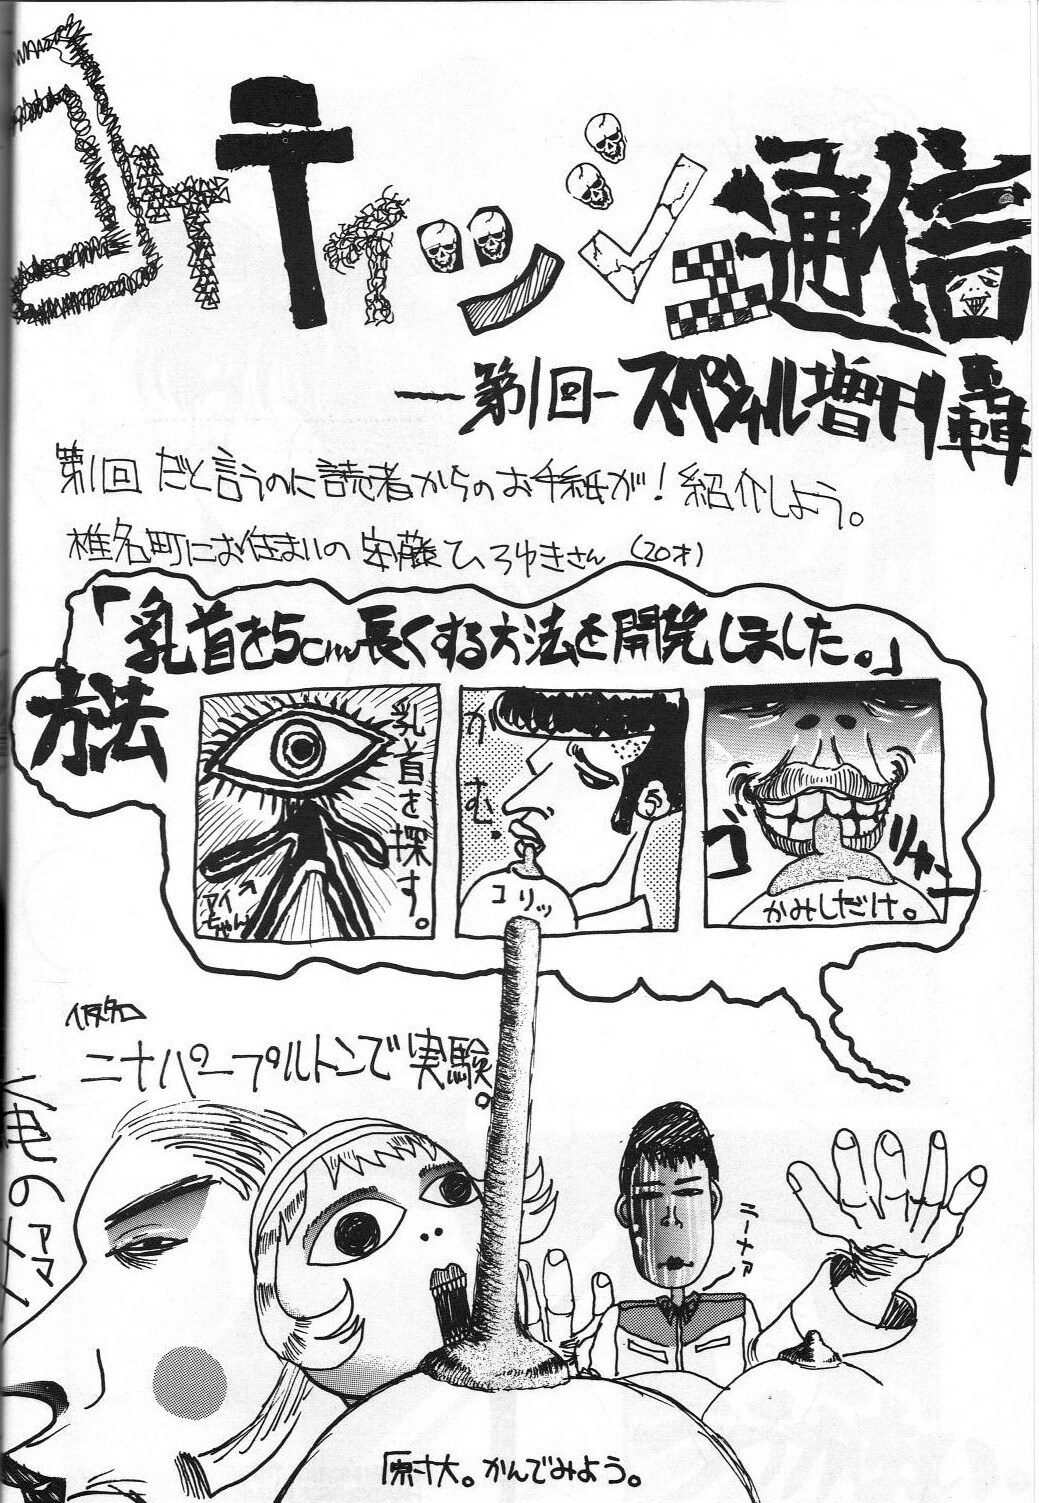 コサティッシュ通信
—第1回— スペシャル増刊轟
第1回 だと言うのに読者からのお手紙が！紹介しよう。
椎名町にお住まいの 安藤ひろゆきさん (20才)
「乳首を5cm長くする方法を開発しました。」
方法
乳首を探す。
アイちゃん
かむ。
コリッ
ゴ
リャン
かみしだけ。
仮名
ニナパープルトンで実験。
俺の
ニーナァ
原寸大。かんでみよう。